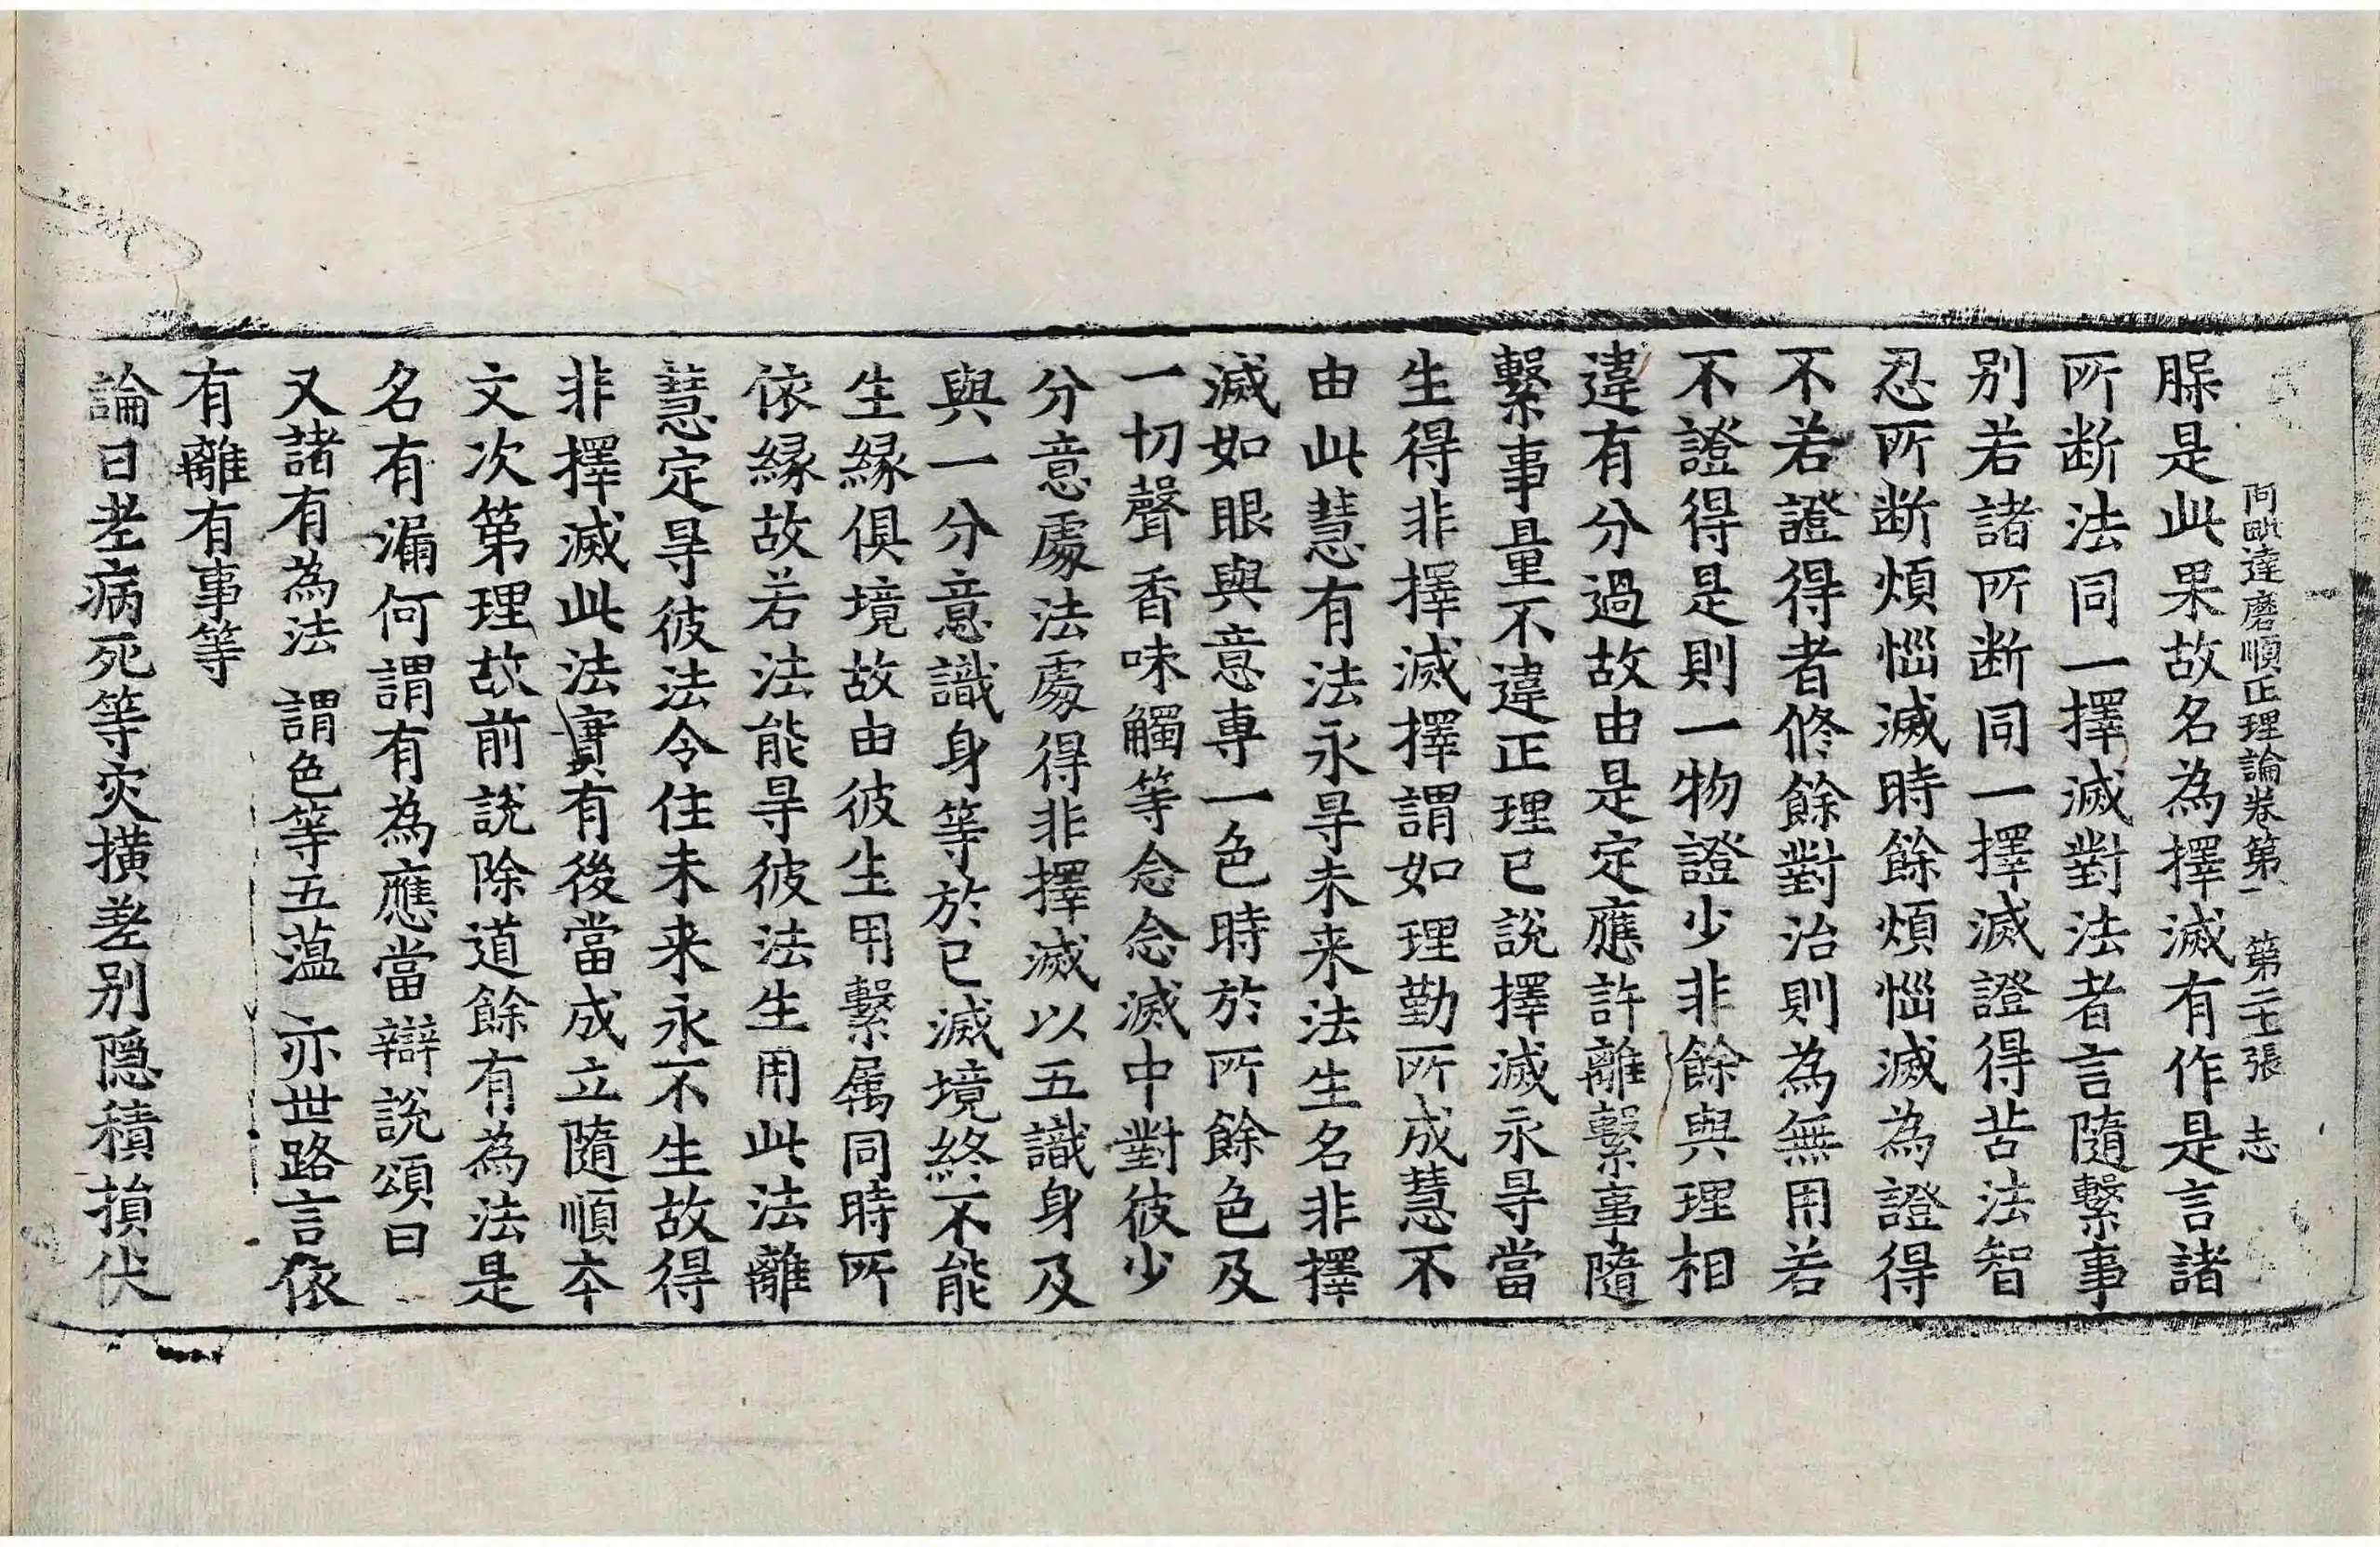 阿毗達磨順正理論卷第一 第二十張 志
𦡀是此果故名為擇滅有作是言諸
所断法同一擇滅對法者言隨繫事
别若諸所断同一擇滅證得苦法智
忍所断煩惱滅時餘煩惱滅為證得
不若證得者修餘對治則為無用若
不證得是則一物證少非餘與理相
違有分過故由是定應許離繫事隨
繫事量不違正理已說擇滅永㝵當
生得非擇滅擇謂如理勤所成慧不
由此慧有法永㝵未来法生名非擇
滅如眼與意專一色時於所餘色及
一切聲香味觸等念念滅中對彼少
分意處法處得非擇滅以五識身及
與一分意識身等於已滅境終不能
生緣俱境故由彼生用繫属同時所
依緣故若法能㝵彼法生用此法離
慧定㝵彼法令住未来永不生故得
非擇滅此法實有後當成立隨順本
文次第理故前說除道餘有為法是
名有漏何謂有為應當辯說頌曰
又諸有為法 謂色等五蕴 亦世路言依
有離有事等
論曰老病死等灾横差别隐積損伏